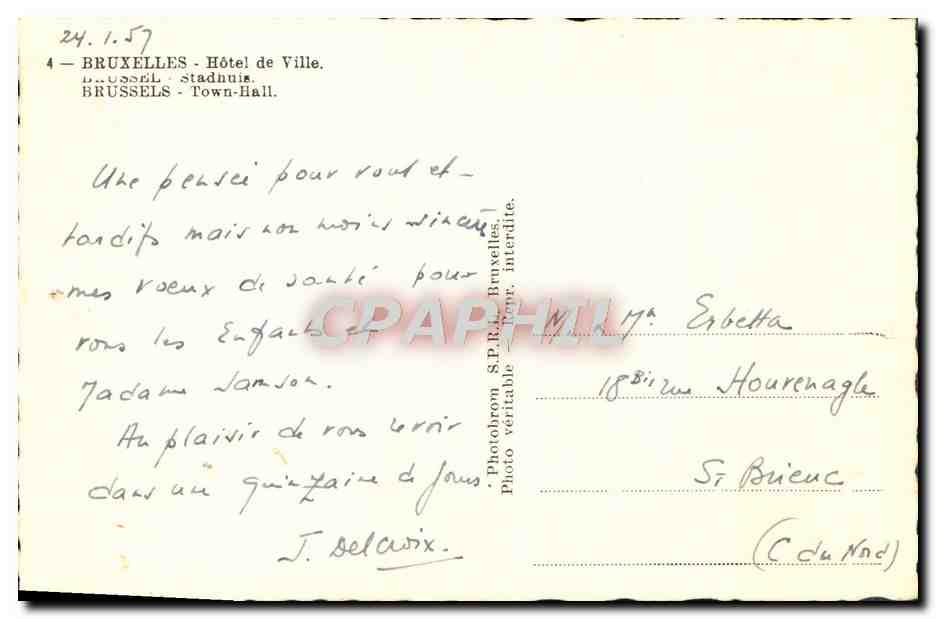 24.1.57
4 — BRUXELLES - Hôtel de Ville.
BRUSSEL - Stadhuis.
BRUSSELS - Town-Hall.
Une pensée pour vous et
tardifs mais non moins sincères
mes voeux de santé pour
vous les Enfants et
Madame Samson.
Au plaisir de vous revoir
dans une quinzaine de jours.
J. Delcroix.
Photobrom S.P.R.L. Bruxelles.
Photo véritable — Repr. interdite.
CPAPHIL
M. & Me Erbetta
18 Bis rue Houvenagle
St Brieuc
(C du Nord)